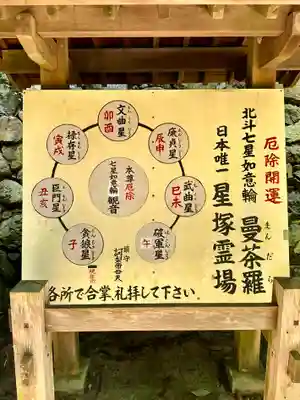 厄除開運
北斗七星如意輪
曼荼羅
まんだら
日本唯一
星塚霊場
文曲星
卯酉
廉貞星
辰申
武曲星
巳未
破軍星
午
禄存星
寅戌
巨門星
丑亥
貪狼星
子
本尊厄除
七星如意輪
観音
鎮守
各所で合掌、礼拝して下さい。